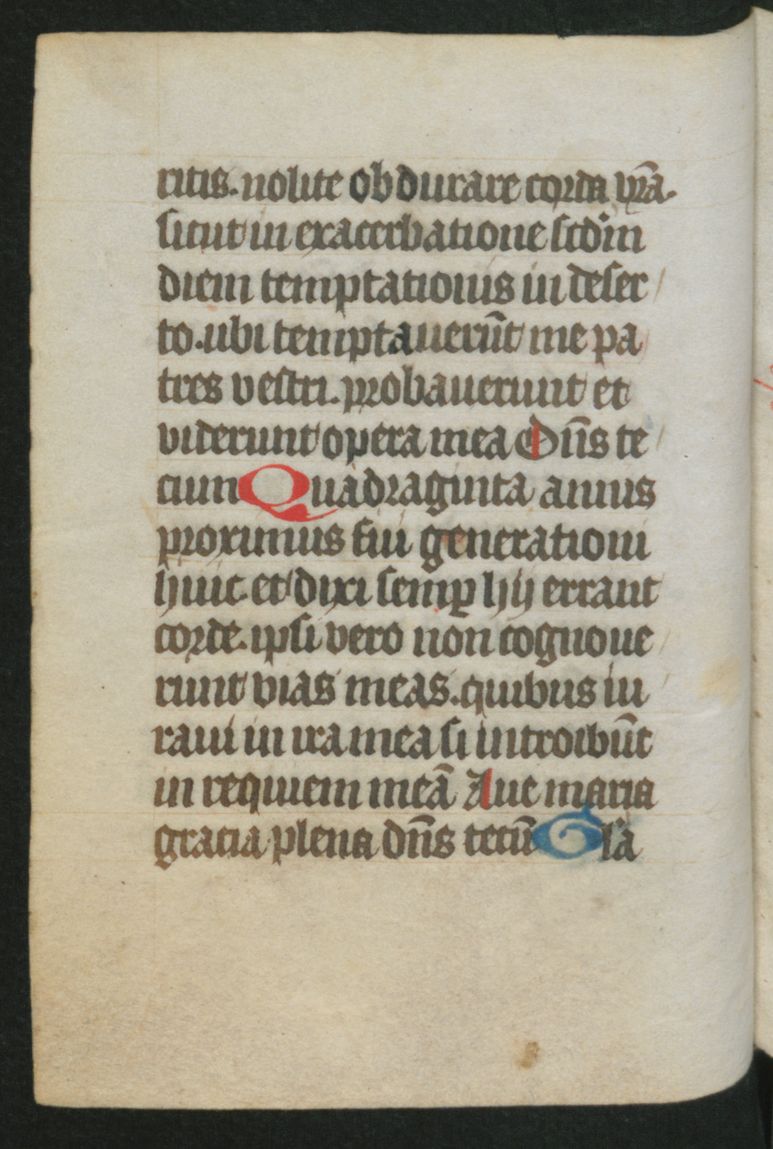 ritis. nolite obdurare corda vr̄a.
sicut in exacerbatione scd'm
diem temptationis in deser
to. ubi temptauerūt me pa
tres vestri. probauerunt et
viderunt opera mea Dn̄s te
cum Quadraginta annis
proximus fui generationi
huic. et dixi semꝑ hij errant
corde. ipsi vero non cognoue
runt vias meas. quibus iu
raui in ira mea si introibūt
in requiem meā Aue maria
gracia plena dn̄s tecū Gl'a